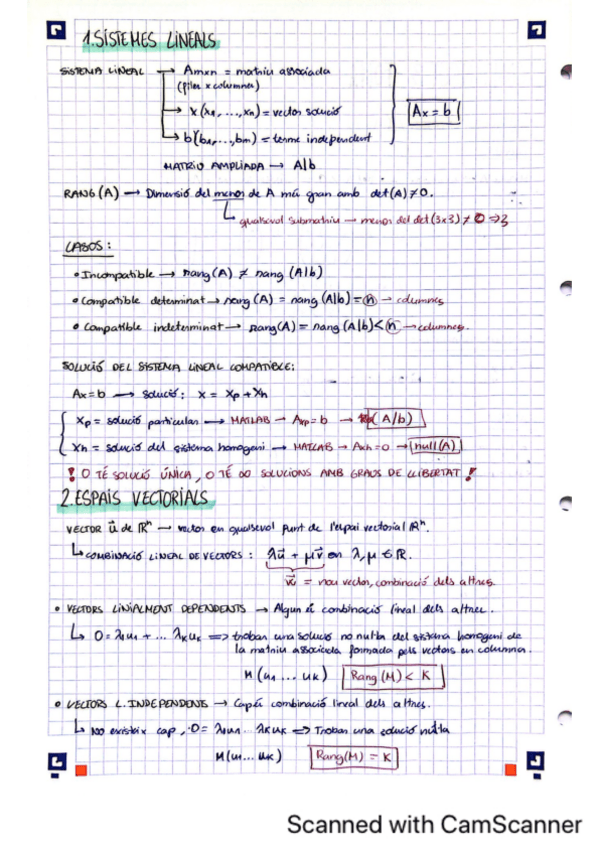 1. SISTEMES LINEALS
SISTEMA LINEAL → Amxn = matriu associada
(files x columnes)
→ x (x1, ..., xn) = vector solució
→ b (b1, ..., bm) = terme independent
Ax = b
MATRIU AMPLIADA → A|b
RANG (A) → Dimensió del menor de A més gran amb det(A) ≠ 0.
qualsevol submatriu → menor del det (3x3) ≠ 0 ⇒ 3
CASOS:
• Incompatible → rang (A) ≠ rang (A|b)
• Compatible determinat → rang (A) = rang (A|b) = n → columnes
• Compatible indeterminat → Rang(A) = rang (A|b) < n → columnes.
SOLUCIÓ DEL SISTEMA LINEAL COMPATIBLE:
Ax = b → solució: x = xp + xh
xp = solució particular → MATLAB → Axp = b → (A/b)
xh = solució del sistema homogeni → MATLAB → Axh = 0 → null(A)
! O TÉ SOLUCIÓ ÚNICA, O TÉ ∞ SOLUCIONS AMB GRAUS DE LLIBERTAT !
2. ESPAIS VECTORIALS
VECTOR u⃗ de ℝⁿ → vector en qualsevol punt de l'espai vectorial ℝⁿ.
COMBINACIÓ LINEAL DE VECTORS: λu⃗ + μv⃗ on λ, μ ∈ ℝ.
= nou vector, combinació dels altres
• VECTORS LINIALMENT DEPENDENTS → Algun és combinació lineal dels altres.
0 = λ1u1 + ... λkuk ⇒ troban una solució no nul·la del sistema homogeni de
la matriu associada formada pels vectors en columna.
M (u1 ... uk) Rang (M) < K
• VECTORS L. INDEPENDENTS → Cap és combinació lineal dels altres.
No existeix cap, 0 = λ1u1 ... λkuk ⇒ Troban una solució nul·la
M (u1 ... uk) Rang(M) = K
Scanned with CamScanner